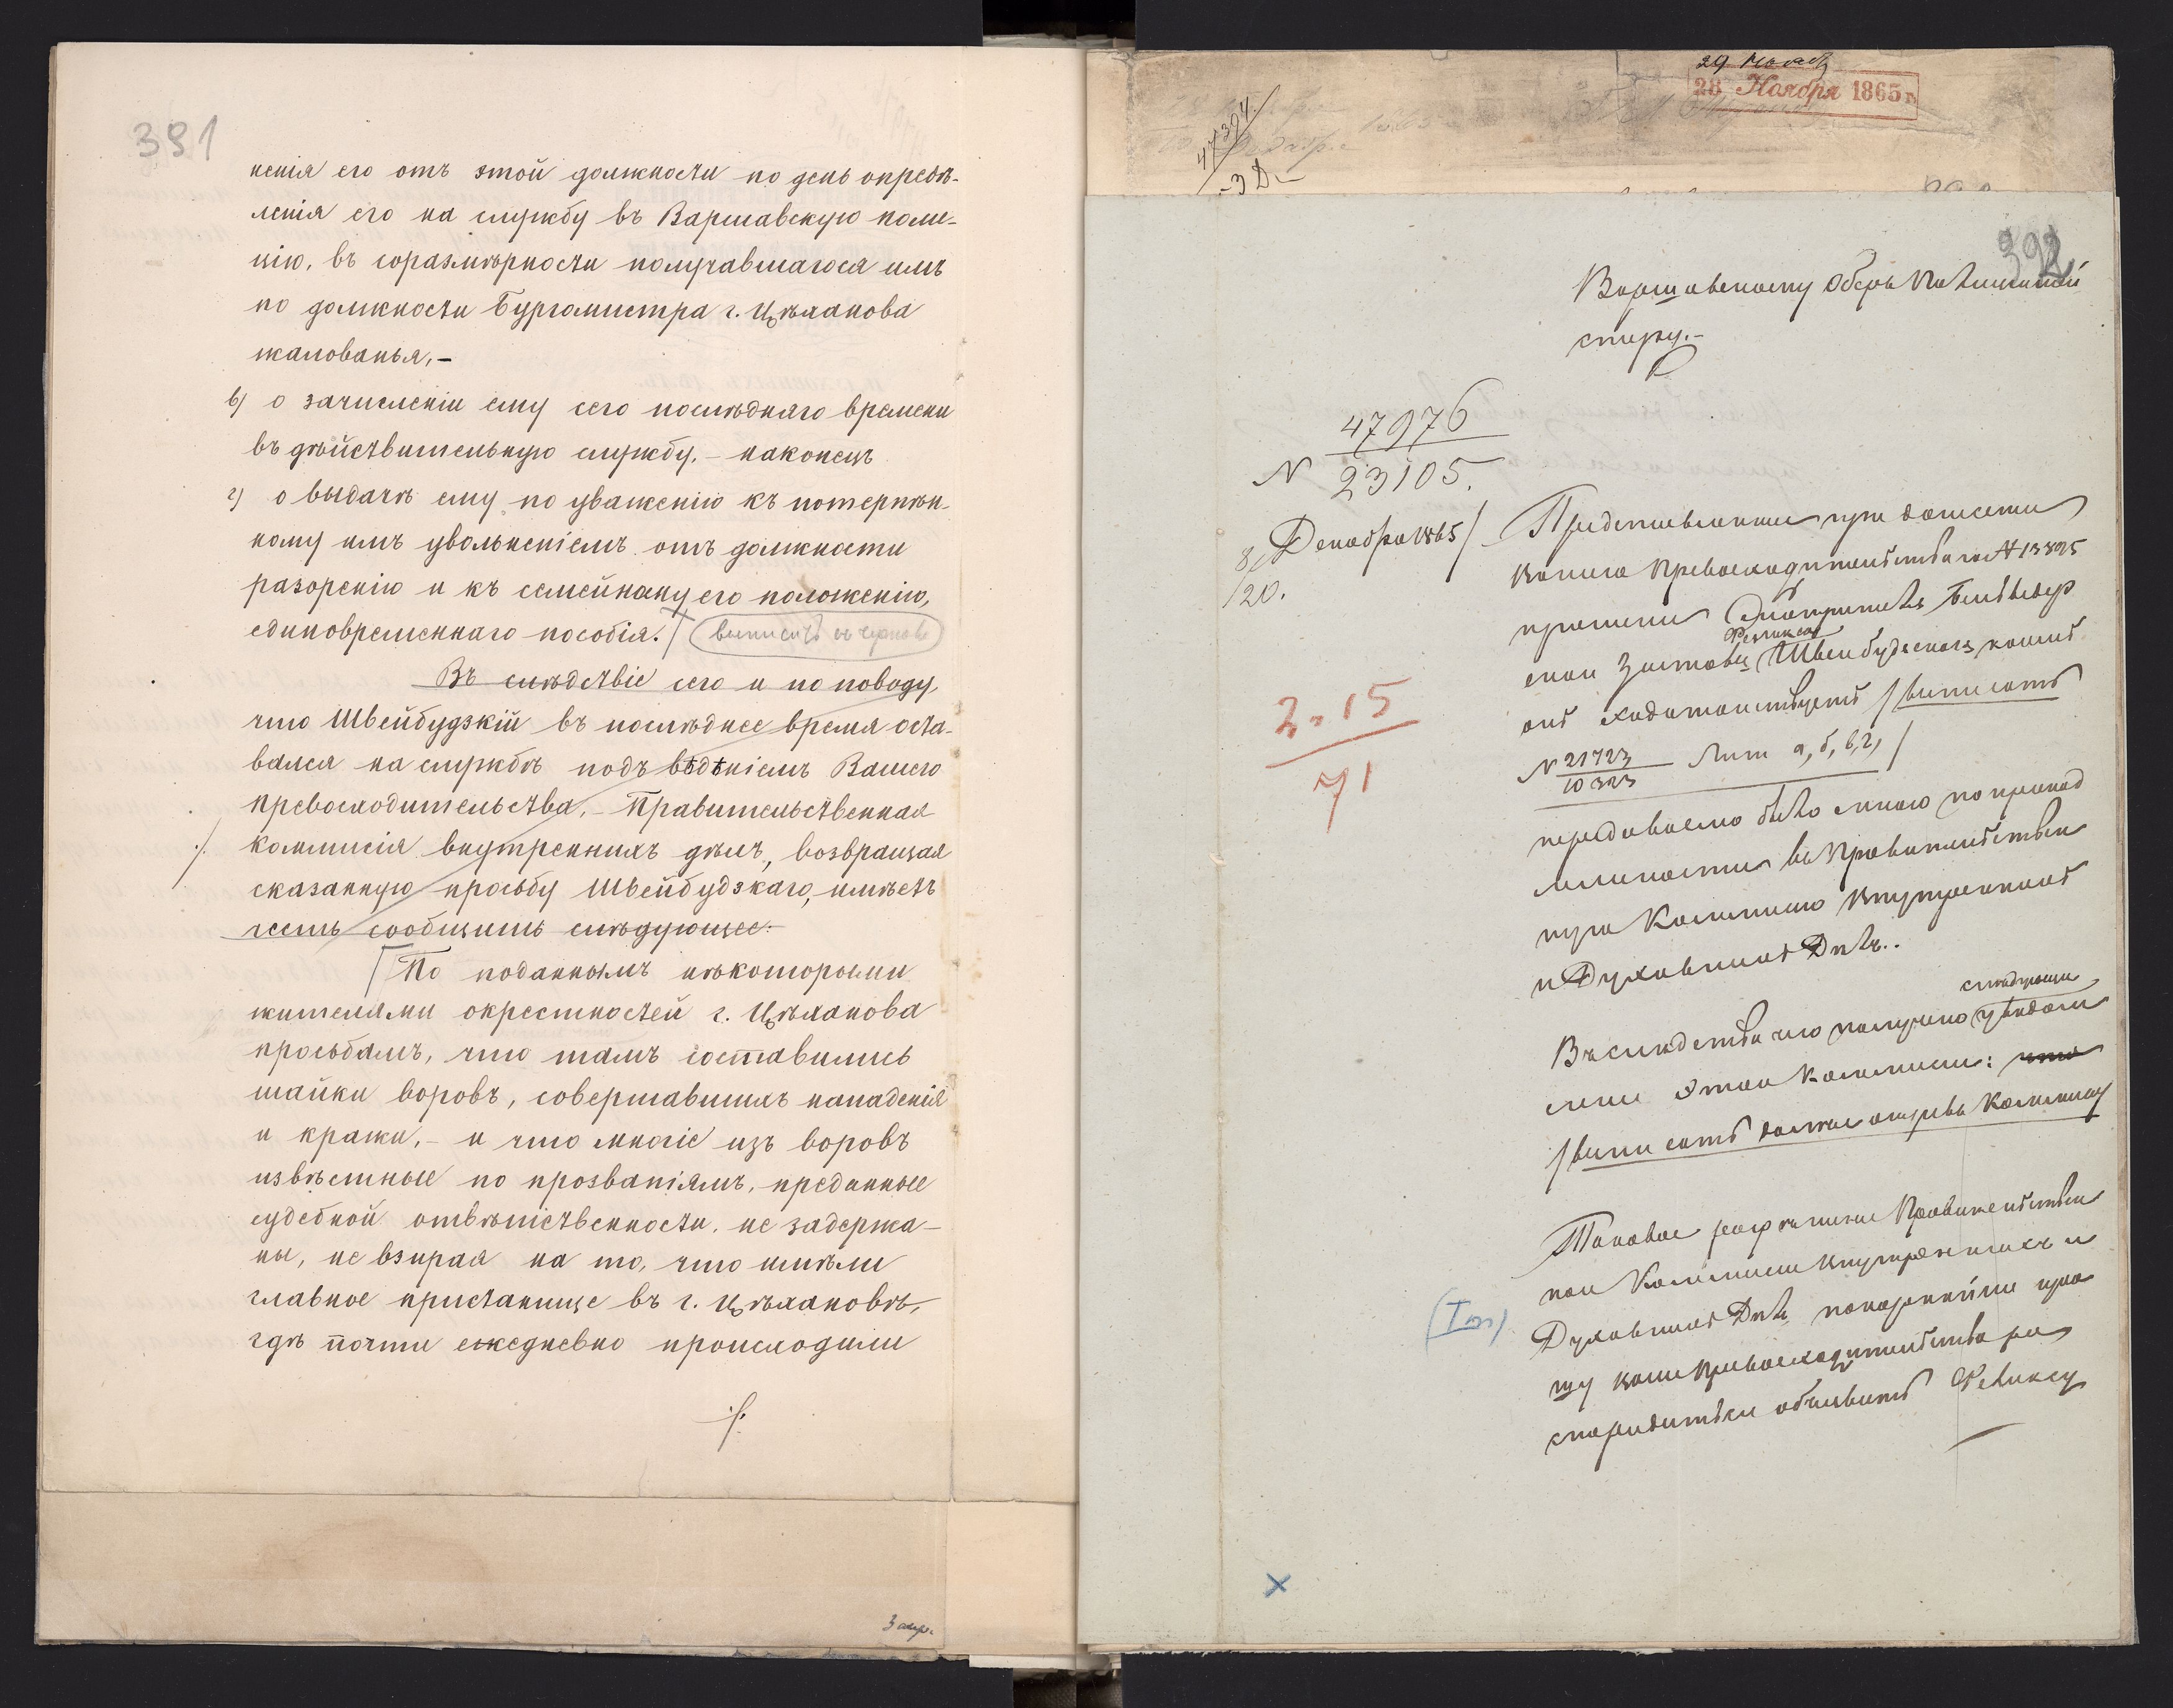 391
ненія его отъ этой должности по день опредѣ-
ленія его на службу въ Варшавскую поли-
цію, въ соразмѣрности получавшагося имъ
по должности Бургомистра г. Цѣханова
жалованья,-
в) о зачисленіи ему сего послѣдняго времени
въ дѣйствительную службу,- наконецъ
г) о выдачѣ ему, по уваженію къ потерпѣн-
ному имъ увольненіемъ отъ должности
разоренію и къ семейному его положенію,
единовременнаго пособія. (выписать
Въ слѣдствіе сего и по поводу,
что Швейбудзкій въ послѣднее время оста-
вался на службѣ подъ вѣдѣніемъ Вашего
Превосходительства,- Правительственная
Коммисія внутреннихъ дѣлъ, возвращая
сказанную просьбу Швейбудзкаго, имѣетъ
честь сообщить слѣдующее:-
По поданнымъ нѣкоторыми
жителями окрестностей г. Цѣханова
просьбамъ, что тамъ составились
шайки воровъ, совершавшихъ нападенія
и кражи,- и что многіе изъ воровъ
извѣстные по прозваніямъ, преданные
судебной отвѣтственности, не задержа-
ны, не взирая на то, что имѣли
главное пристанище въ г. Цѣхановѣ,
гдѣ почти ежедневно происходили
./.
29 Нояб
28 Ноября 1865 г.
47394
392
Варшавскому Оберъ Полицiймей
стеру.-
47976
N 23105.
8/20. Декабря 1865
Представленное при донесеніи
Вашего Превосходительства за N 13895
прошеніе Смотрителя Бельведер
ской Заставы Феликса Швейбудзскаго, коимъ
онъ ходатайствуетъ /выписать
N 21723
10323 Лит а, б, в, г, /
3.15
71
передаваемо было мною по принад
лежности въ Правительствен
ную Коммисію Внутреннихъ
и Духовныхъ Дѣлъ..
Въ слѣдствіе чего получено слѣдующее увѣдом
леніе этой Коммисіи: что
/выписать отзывъ Коммисіи/
Таковое рѣшеніе Правительствен
ной Коммисіи Внутреннихъ и
Духовныхъ Дѣлъ, покорнѣйше про
шу Ваше Превосходительство ра
споридиться объявить Феликсу